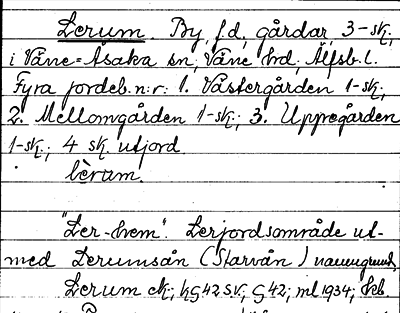 Lerum. By, f.d. gårdar, 3-sk,
i Väne-Åsaka sn, Väne hd, Älfsb. l.
Fyra jordeb.n:r: 1. Västergården 1-sk;
2. Mellomgården 1-sk; 3. Uppregården
1-sk; 4 sk. utjord
lèrum.
"Ler-hem". Lerjordsområde ut-
med Lerumsån (Starvån)
Lerum ek; hG42SV, G42; ml 1934; Feb.